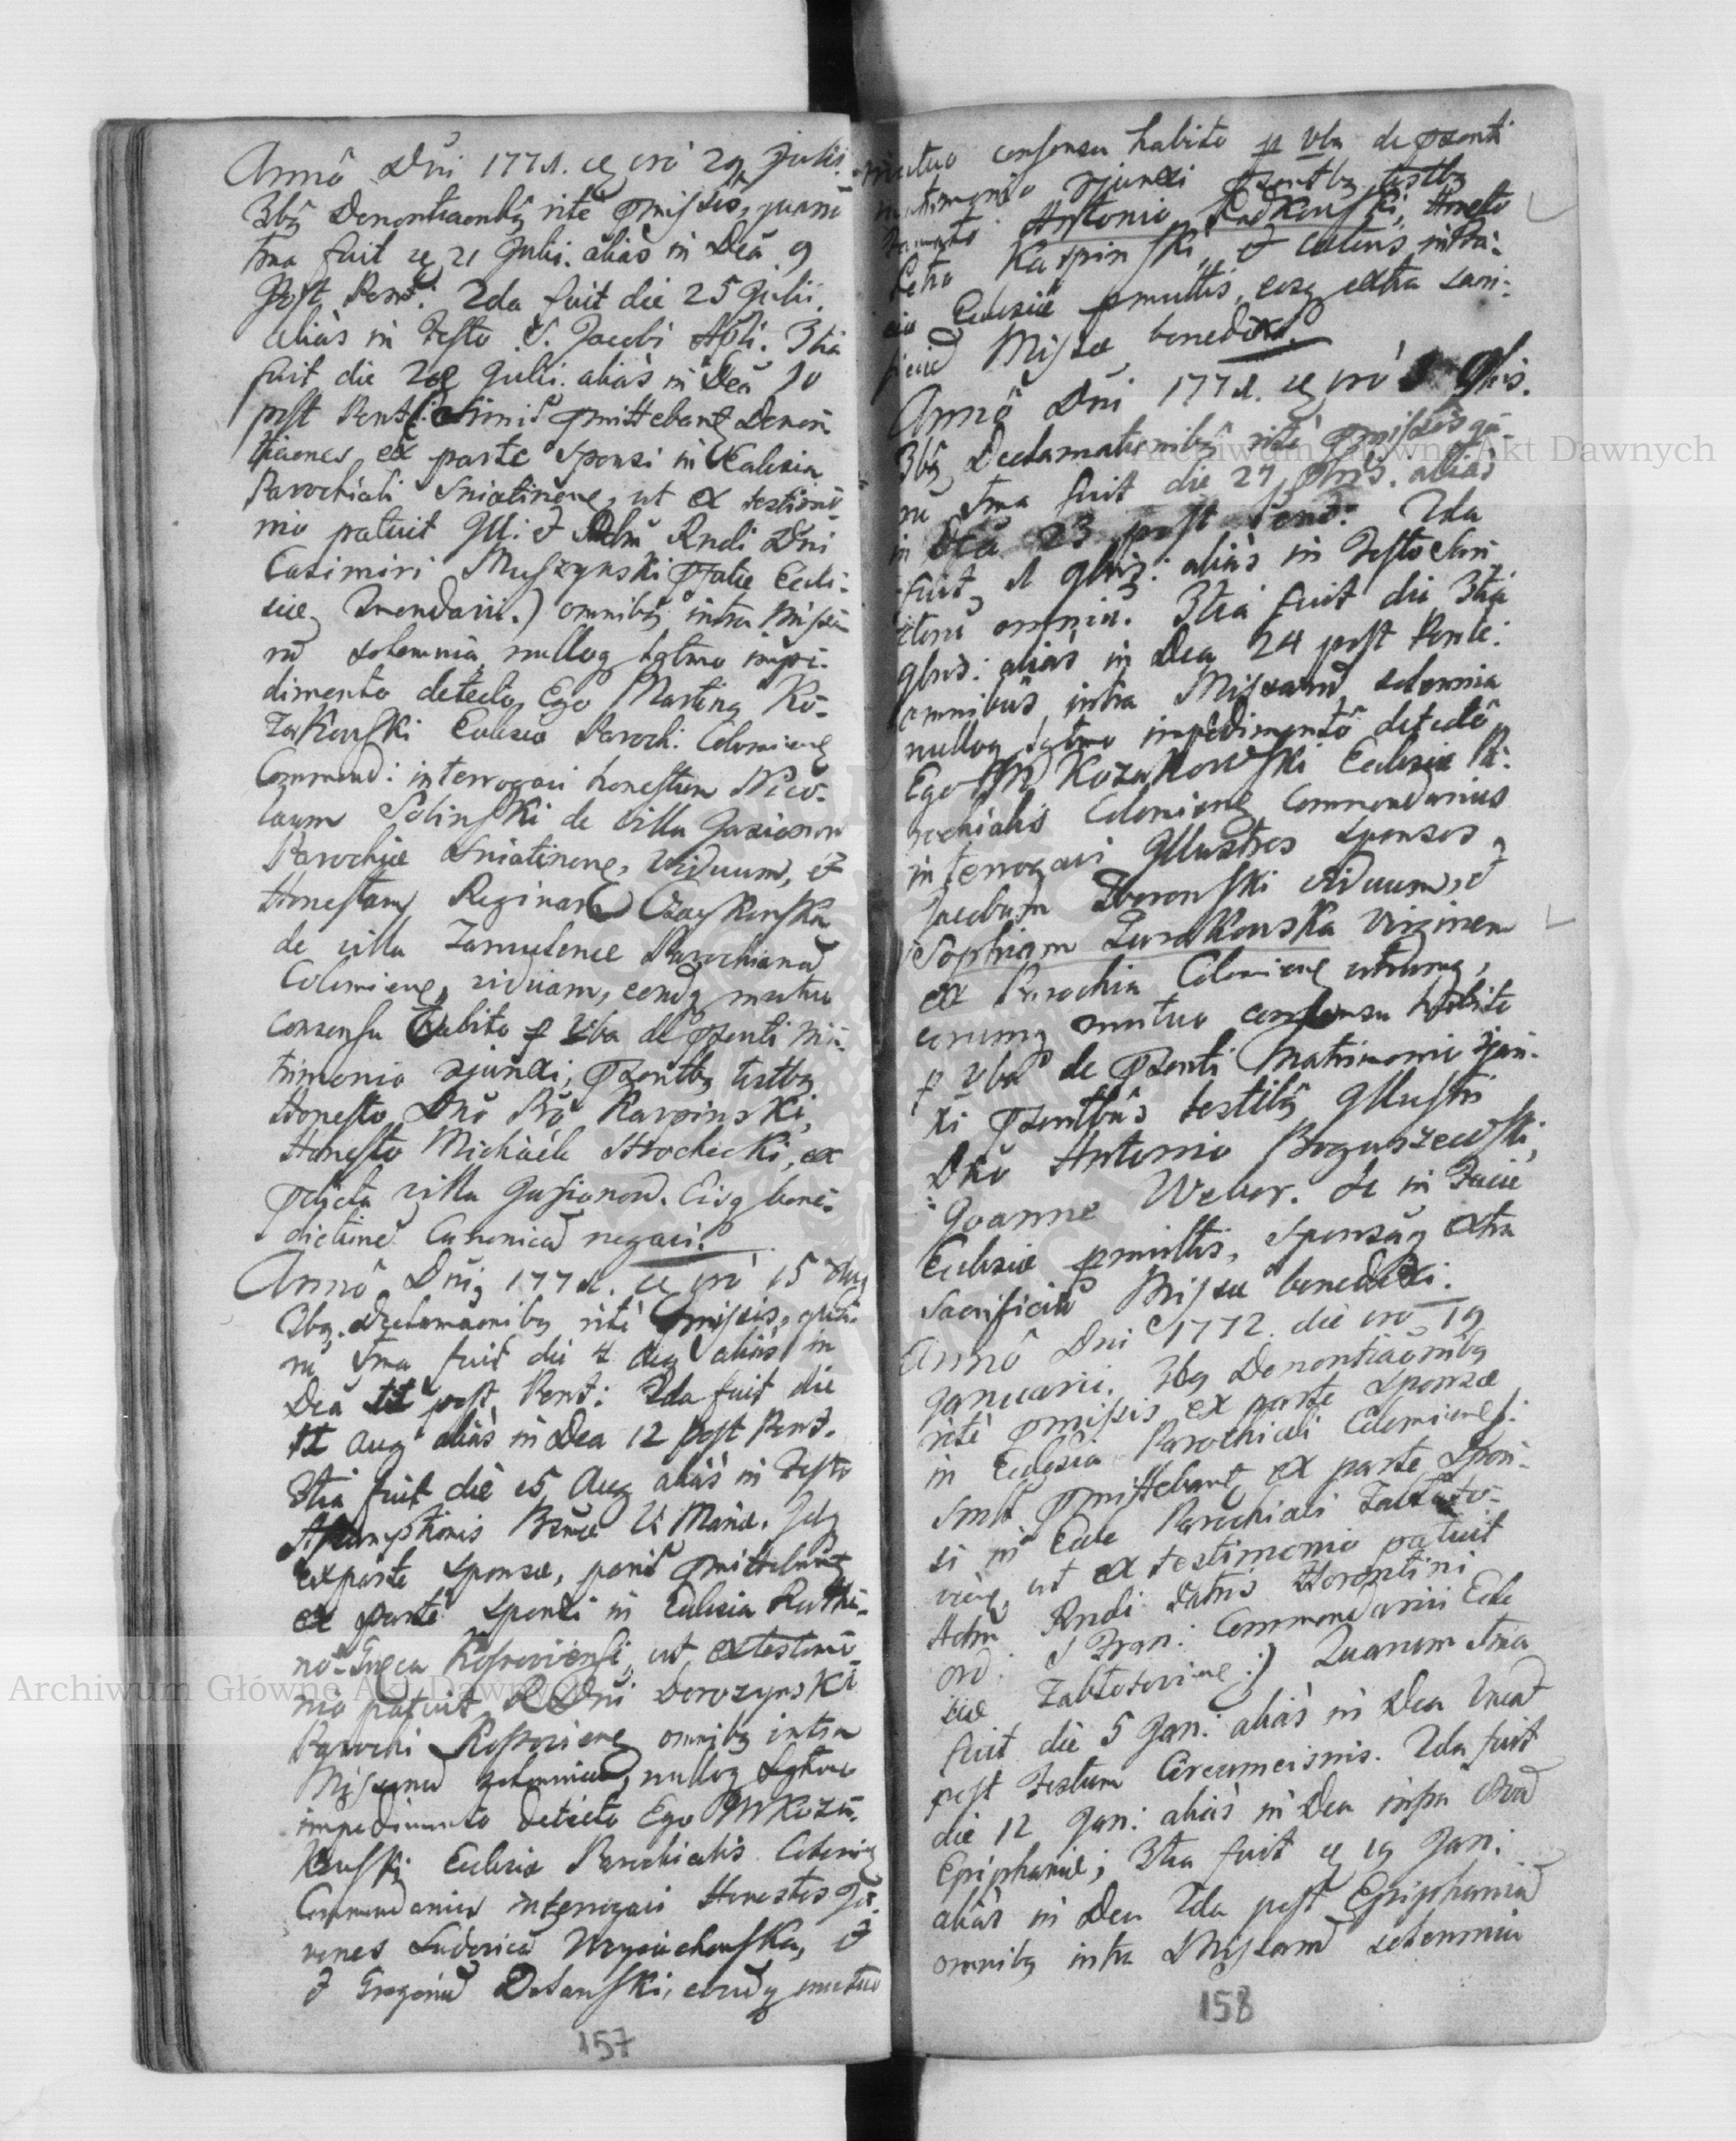 Annô Dni 1771. die vrô 29 Julii.
3bq Denontiaonibq ritè pmissis, quarũ
1ma fuit die 21 Julii. aliàs in Dca 9
Post Pent: 2da fuit die 25 Julii
aliàs in Festo S. Jacobi Apli. 3tia
fuit die 28 Julii. aliàs in Dca 10
post Pent (: simil pmittebant Denon
tiaones, ex parte Sponsi in Ecclesia
Parochiali Sniatinens, ut ex testimo
nio patuit Ill: & Adm Rndi Dni
Casimiri Muszynski pfatae Eccle:
siae Comendarii.) omnibq intra Missa
rũ solemnia, nulloq lgtmo impe:
dimento detecto, Ego Martinq Ko-
zakowski Ecclesiae Paroch: Colomiens
Commend: interrogavi honestum Nico:
laum Solinski de Villa
Parochiae Sniatinens, viduum, et
Honestam Reginam
de villa Zamulence Parochiana
Colomiens, viduam, eorũq mutuo
consensu habito p vba de psenti Ma:
trimonio cjunxi, psentbq testbq
Honesto Dnô Karpinski,
Honesto Michaele, ex
pdicta villa. Eisq bene:
dictionẽ Canonicã negavi.
Annô Dni, 1771. die vrô 15 Aug
3bq. Declamaonibq ritè pmissis, qua
rũ 1ma fuit die 4 Aug aliàs in
Dca 11 post Pent: 2da fuit die
11 Aug aliàs in Dca 12 post Pent.
3tia fuit die 15 Aug aliàs in Festo
Assumptionis V Mariae.
ex parte sponsae, pmittebant
ex parte sponsi in Ecclesia Ruthe-
no-Graeca Kossoviensi, ut ex testimo
nio patuit R Dni Dorozynski
Parochi Kossoviens, omnibq intra
Missarũ solemnia, nulloq Lgtmo
impedimento detecto Ego M Koza-
kowski Ecclesiae Parochialis Colomiens
Commendarius interrogavi Honestos Ju:
venes Ludovicã, &
& Gregoriũ, eorũq mutuo
157
mutuo consensu habito p vba de psenti
matrimonio cjunxi psentbq testbq
Antonio Radkowski, Honesto
Petro Karpinski, & caeteris, in fa:
cie Ecclesiae pmultis, eosq extra sacri:
ficiũ Missae benedixi.
Annô Dni 1771. die vrô 9bris.
3bq Declamationibq ritè pmissis qua
rũ 1ma fuit die 27 8bris. aliàs
in Dca 23 post Pent: 2da
fuit 1 9bris: aliàs in Festo San
ctorũ omniũ. 3tia fuit die 3tia
9bris: aliàs in Dca 24 post Pente:
omnibus intra Missarũ solemnia
nulloq lgtmo impedimentô detectô
Ego M Kozakowski Ecclesiae Pa:
rochialis Colomiens Commendarius
interrogavi Illustres sponsos,
Jacobum Dworonski viduum, &
Sophiam Zurakowska virginem
ex Parochia Colomiens utrumq,
eorumq mutuo consensu habito
p vba de psenti Matrimonio cjun-
xi psentibus testibq Illustri
Dnô Antonio Boguszewski,
Joanne Weber. & in facie
Ecclesiae pmultis, sponsosq extra
sacrificiũ Missae benedixi.
Annô Dni 1772. die vrô 19
Januarii. 3bq Denontiaonibq
ritè pmissis ex parte sponsae
in Ecclesia Parochiali Colomiens (:
simil pmittebant, ex parte Spon-
si in Eccle Parochiali Zabloto-
viens, ut ex testimonio patuit
Adm Rndi Patris Florentini
ord: S Fran: Commendarii Eccle
siae Zablotoviens:) Quarum 1ma
fuit die 5 Jan: aliàs in Dca Vacat
post Festum Circumcisnis. 2da fuit
die 12 Jan: aliàs in Dca infra Octavã
Epiphaniae; 3tia fuit die 19 Jan:
aliàs in Dca 2da post Epiphaniã
omnibq intra Missarũ solemnia
158
Archiwum Główne Akt Dawnych
Archiwum Główne Akt Dawnych